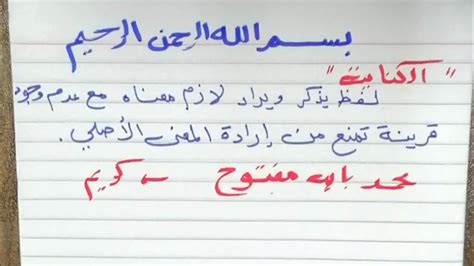 بسم الله الرحمن الرحيم
"الكناية"
لفظ يذكر ويراد لازم معناه مع عدم وجود
قرينة تمنع من إرادة المعنى الأصلي.
محمد بابه مفتوح ← كريم